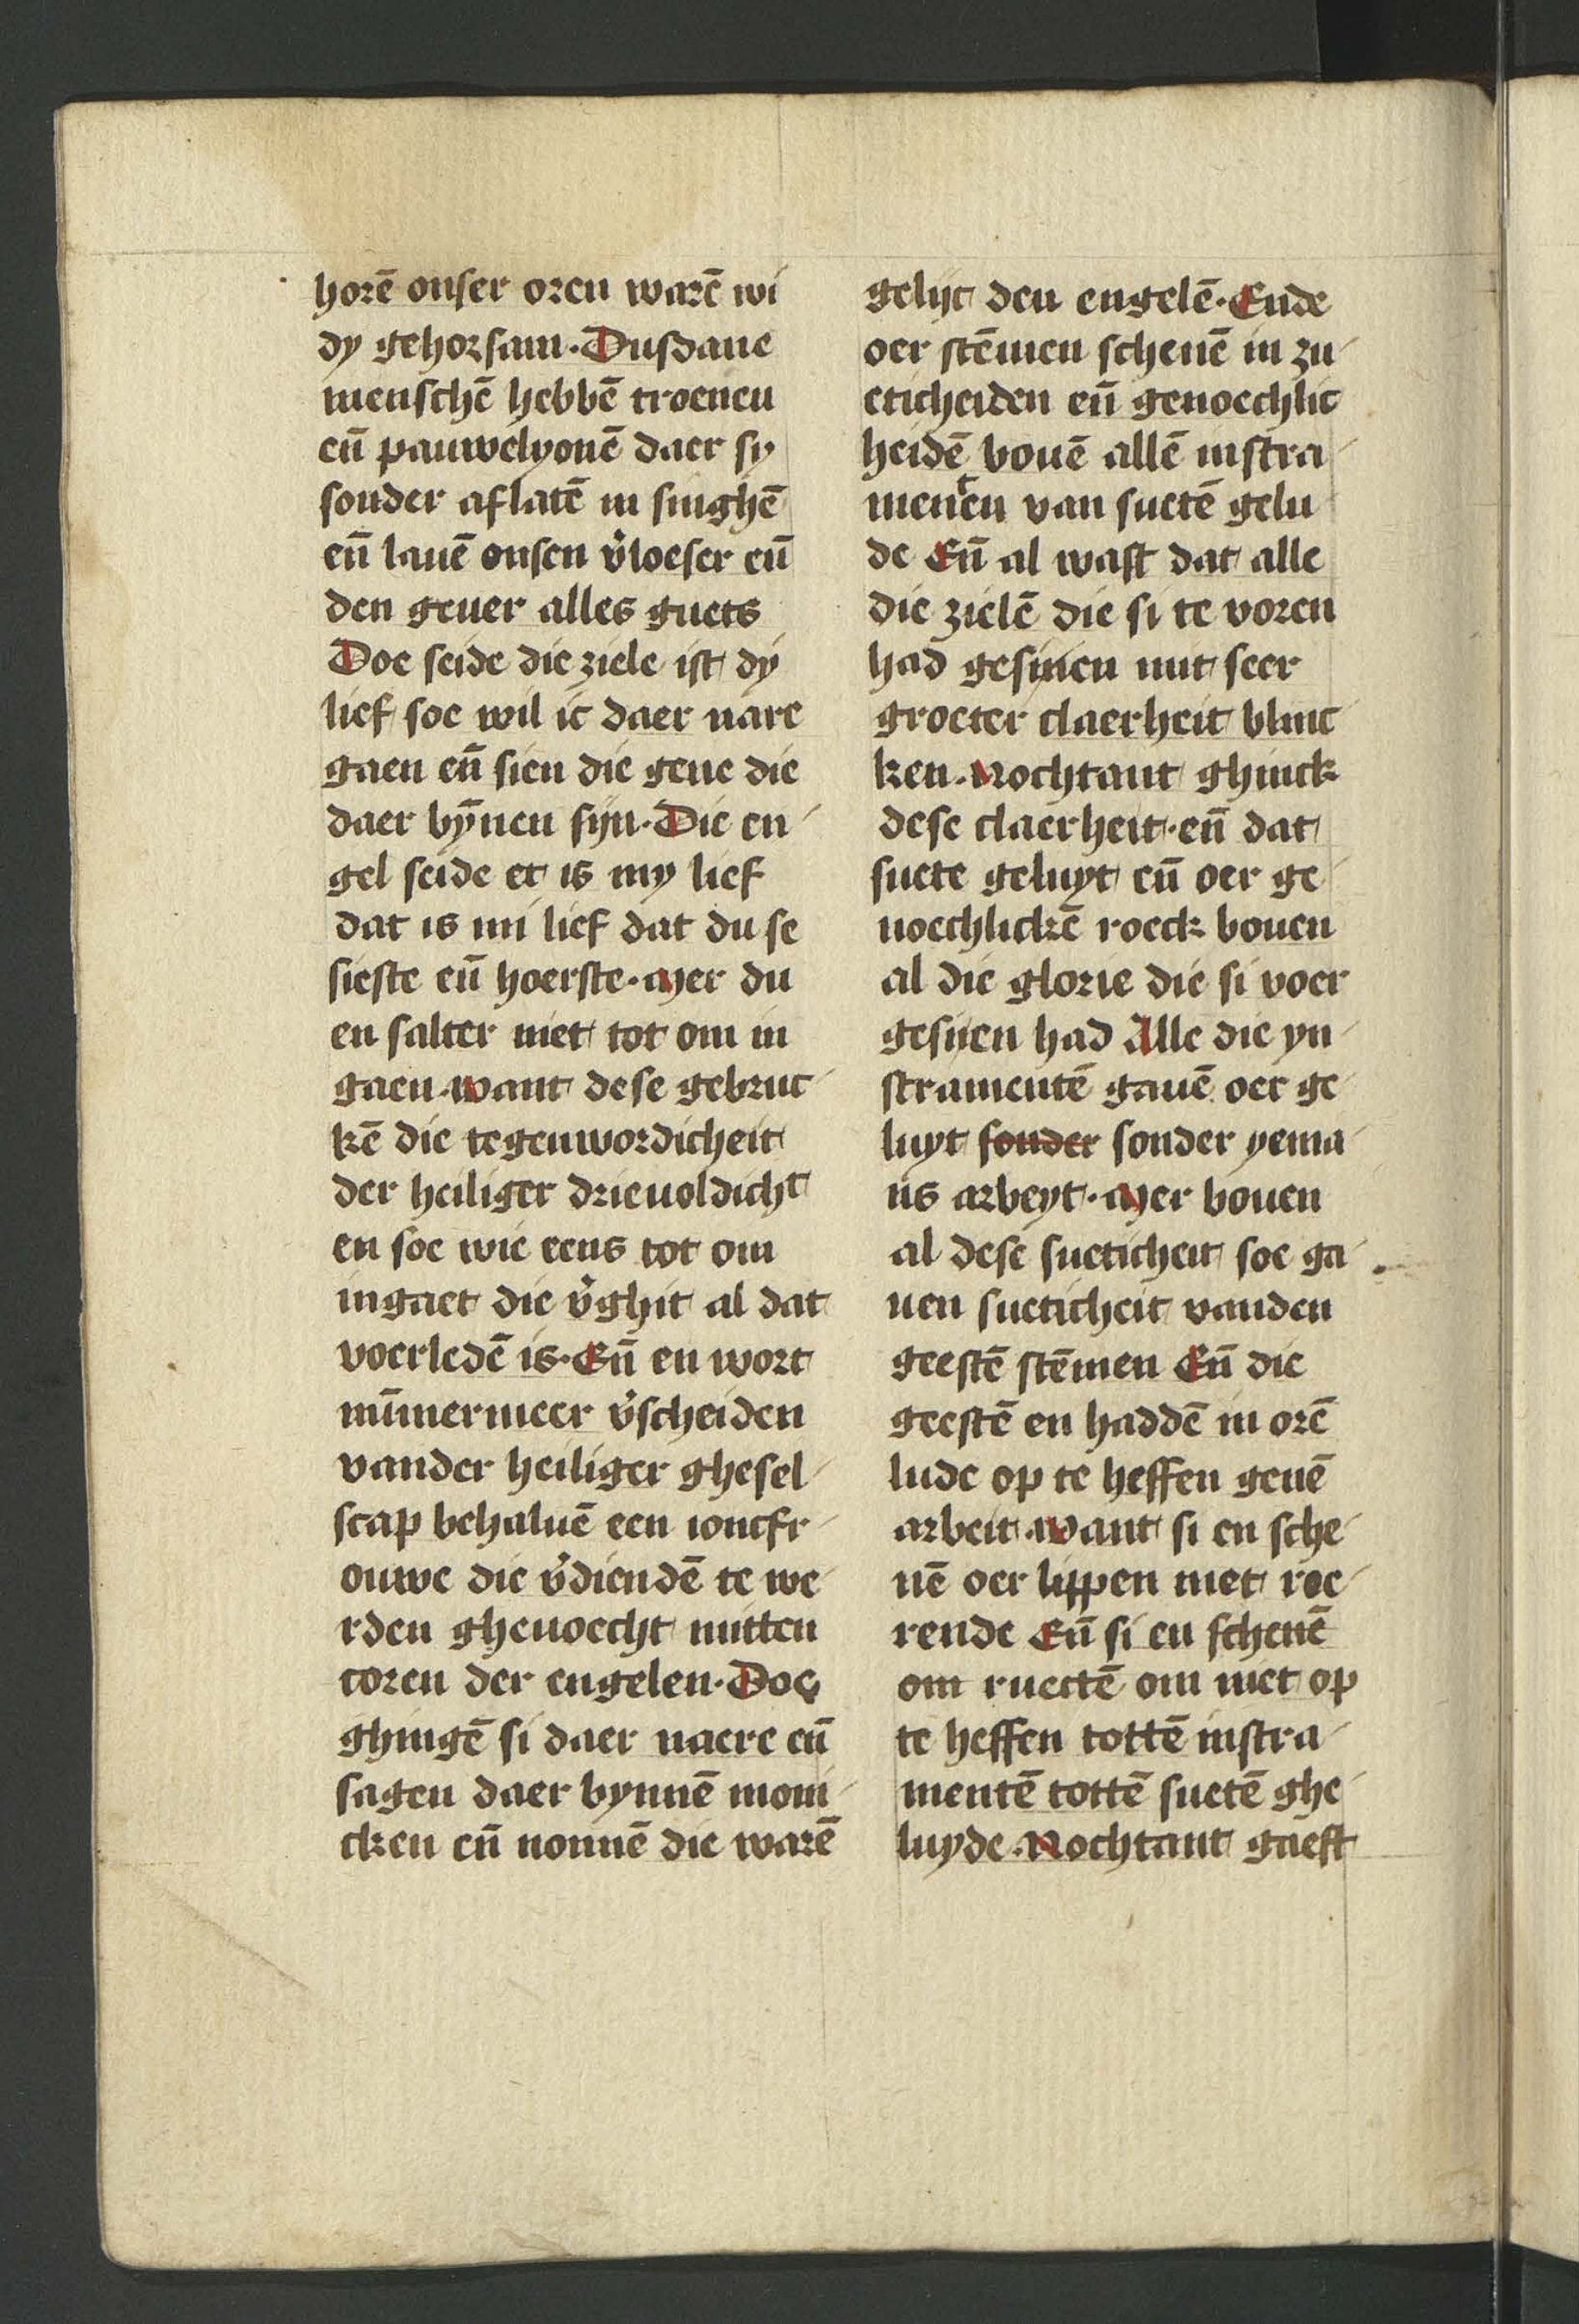 horē onser oren warē wi
dy gehorsam. Dusdane
menschē hebbē troenen
en̄ pauwelyonē daer sy
sonder aflatē in singhē
en̄ lauē onsen v̓loeser en̄
den geuer alles guets
Doe seide die ziele ist dy
lief soe wil ic daer nare
gaen en̄ sien die gene die
daer bȳnen sijn. Die en
gel seide et is my lief
dat is mi lief dat du se
sieste en̄ hoerste. Mer du
en salter niet tot om in
gaen. want dese gebruc
kē die tegenwordicheit
der heiliger drieuoldicht
en soe wie eens tot om
ingaet die v̓ghit al dat
voerledē is. En̄ en wort
nūmermeer v̓scheiden
vander heiliger ghesel
scap behaluē een ioncfr
ouwe die v̓diendē te we
rden ghenoecht mitten
coren der engelen. Doe
ghingē si daer naere en̄
sagen daer bynnē moni
cken en̄ nonnē die warē
gelijc den engelē. Ende
oer stēmen schenē in zu
eticheiden en̄ genoechlic
heidē bouē allē instra
menten van suetē gelu
de En̄ al wast dat alle
die zielē die si te voren
had gesijnen mit seer
groeter claerheit blinc
ken. Nochtant ghinck
dese claerheit. en̄ dat
suete geluyt en̄ oer ge
noechlickē roeck bouen
al die glorie die si voer
gesijen had Alle die yn
stramentē gauē oer ge
luyt sonder sonder yema
ns arbeyt. Mer bouen
al dese sueticheit soe ga
uen sueticheit vanden
geestē stēmen En̄ die
geestē en haddē in orē
lude op te heffen genē
arbeit. want si en sche
nē oer lippen niet roe
rende En̄ si en schenē
om ruectē om niet op
te heffen tottē instra
mentē tottē suetē ghe
luyde. Nochtant gaeft